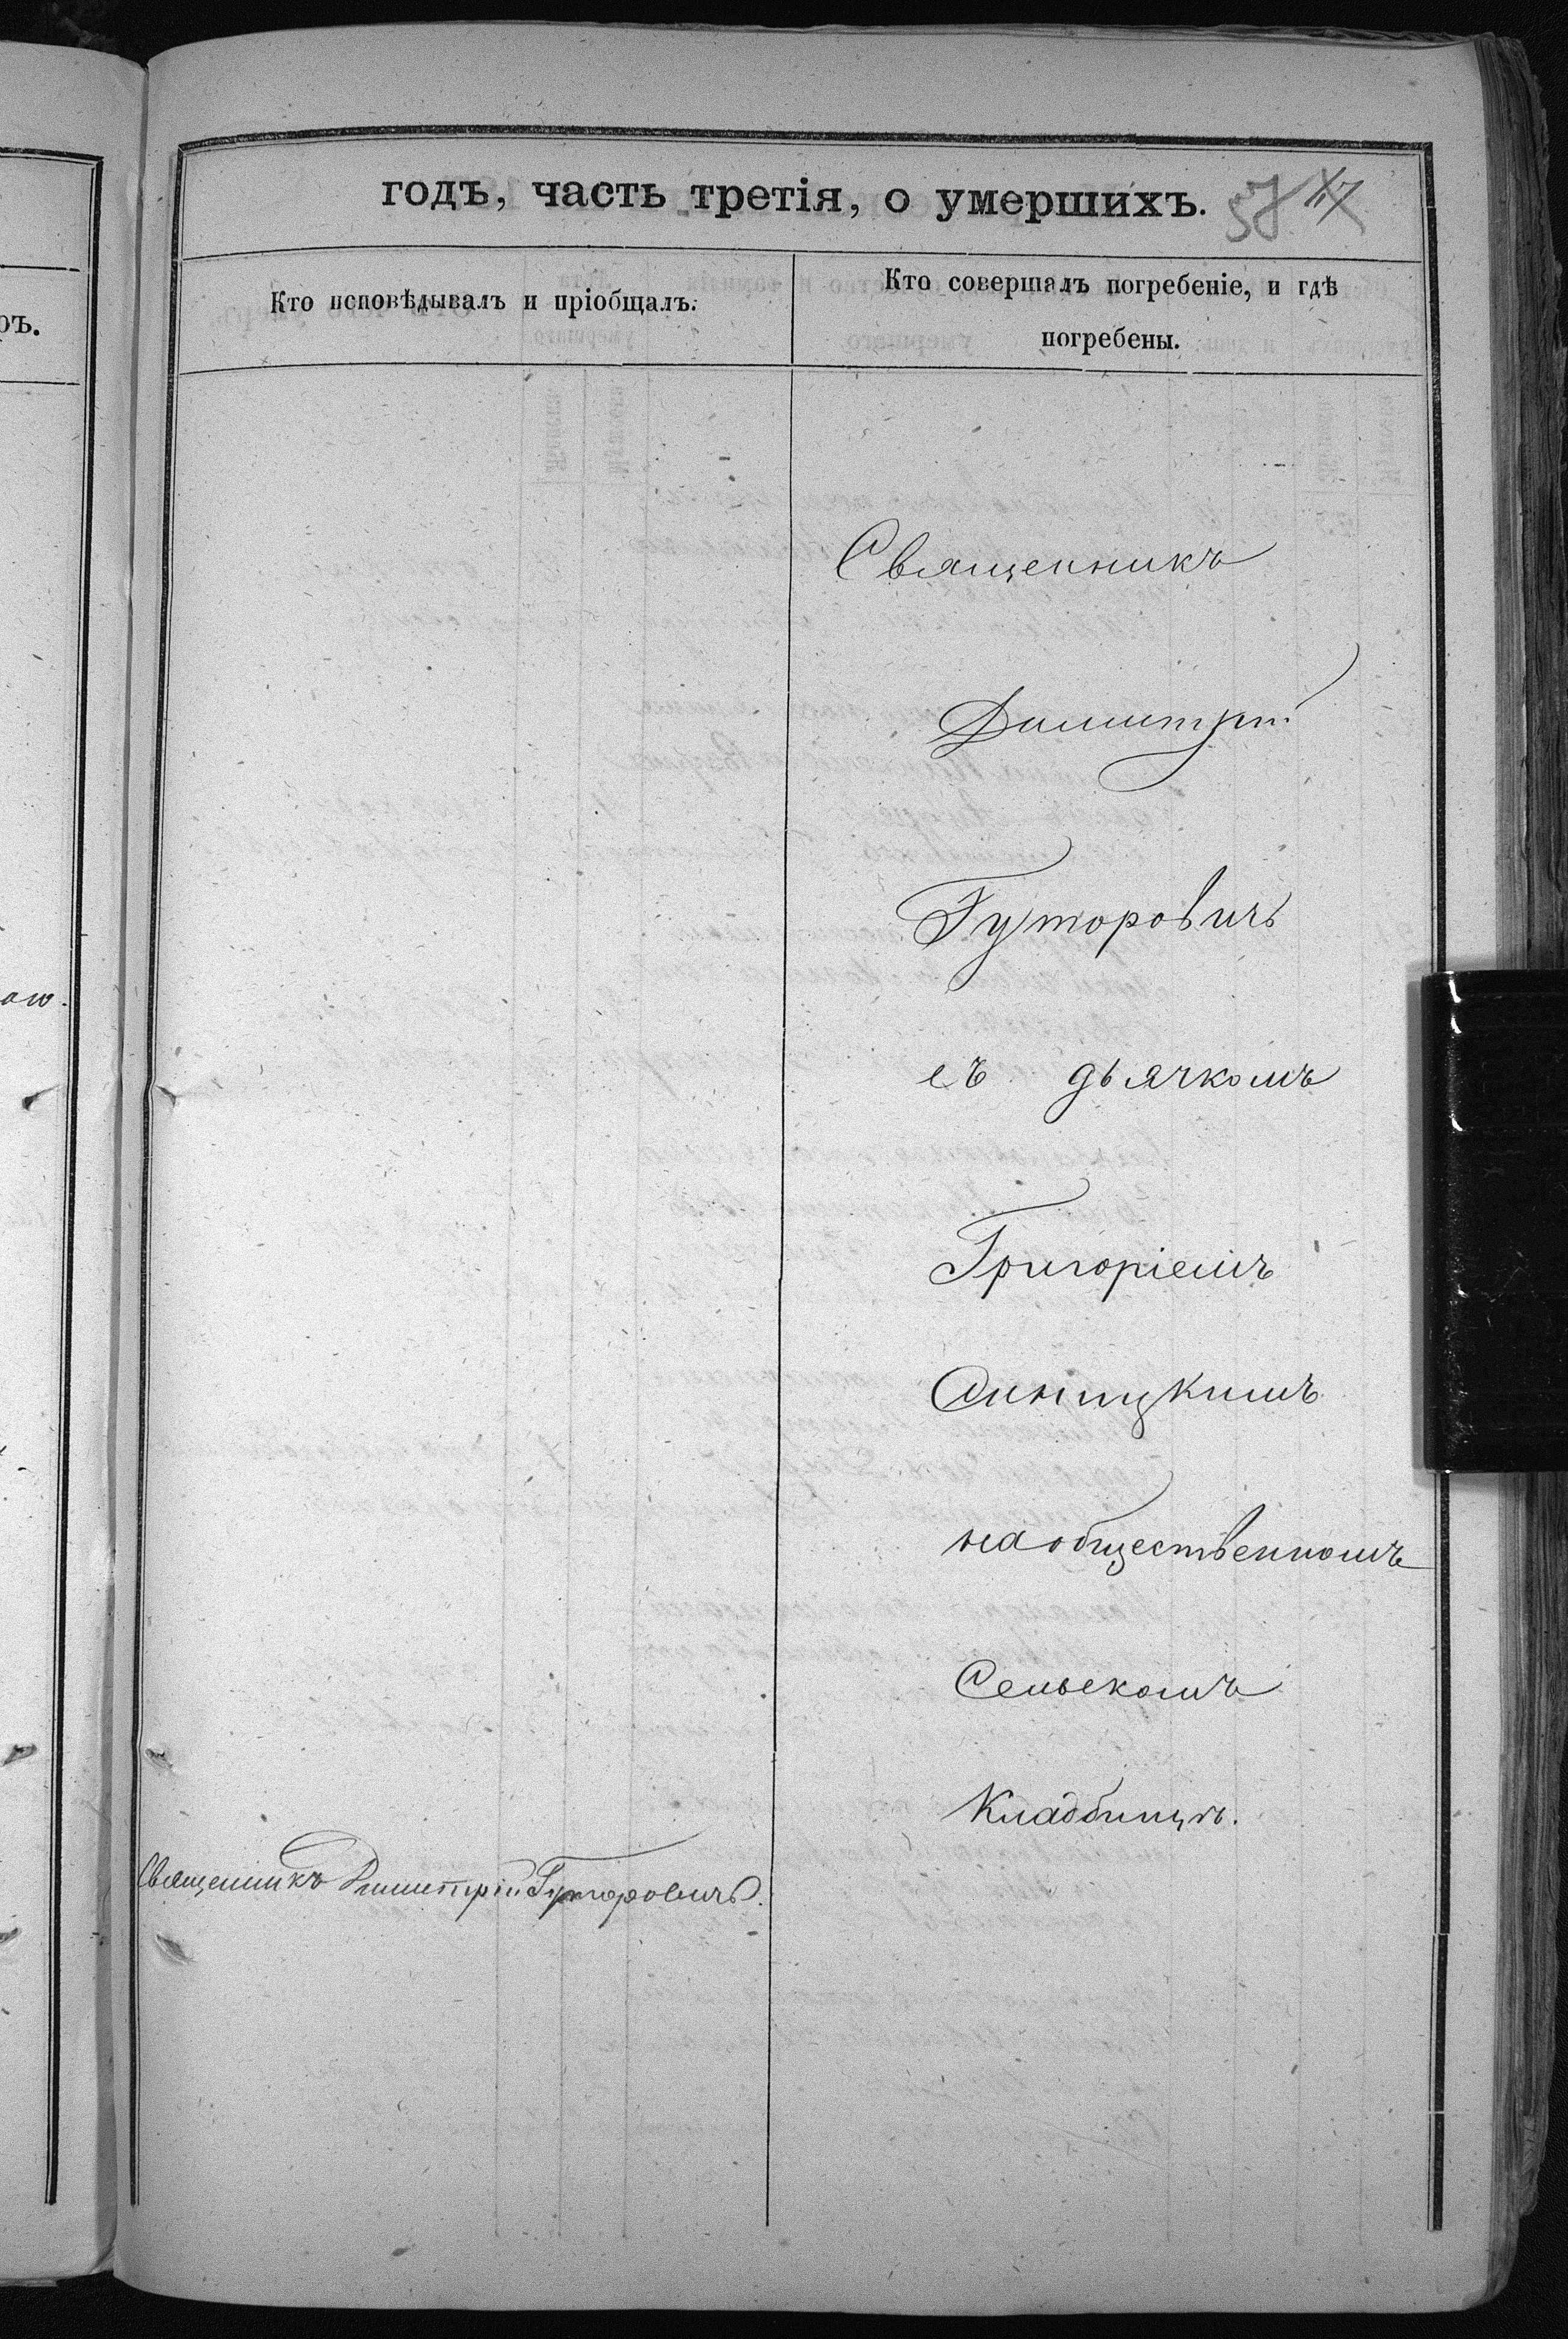 ръ.
аю.
годъ, часть третія, о умершихъ. 57
Кто исповѣдывалъ и пріобщалъ.
Кто совершалъ погребеніе, и гдѣ
погребены.
Священникъ
Димитрій
Гуторовичъ
съ дьячкомъ
Григоріемъ
Синицкимъ
на общественномъ
Сельскомъ
Кладбищѣ.
Священникъ Димитрій Гуторовичъ.